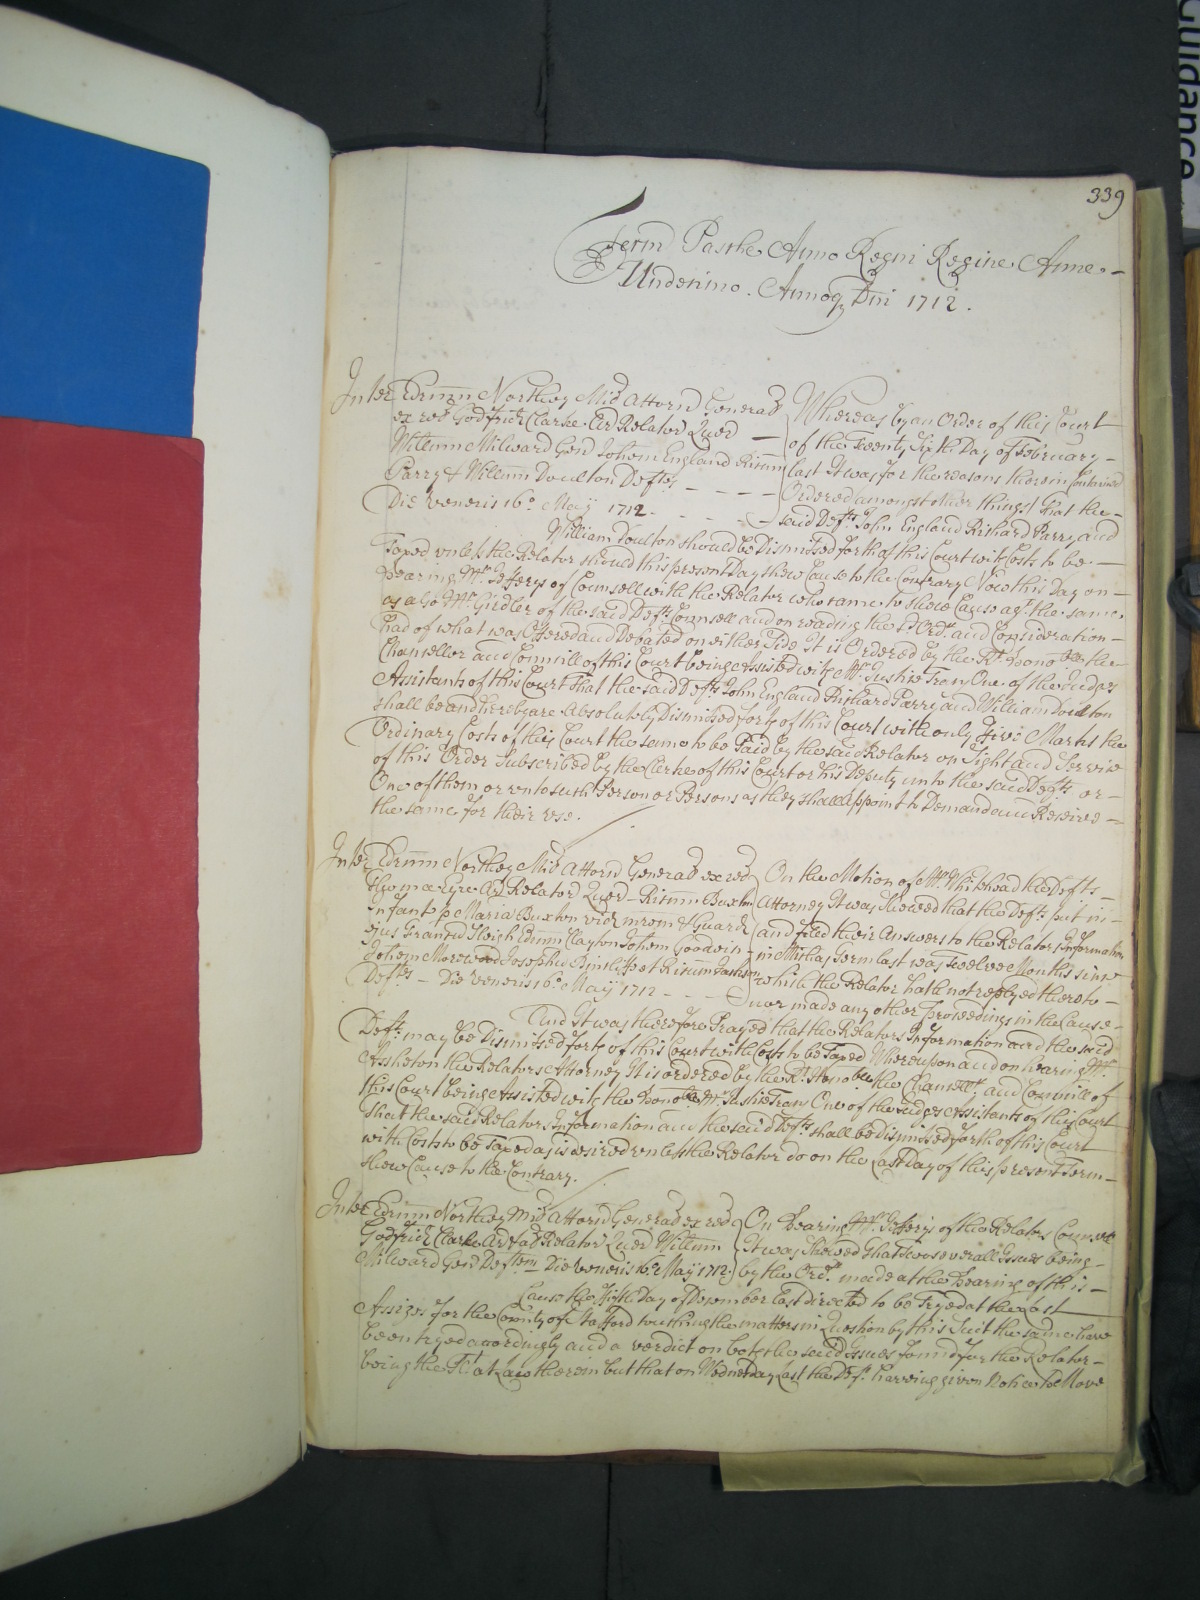 Guidance
339
Term Pasche Anno Regni Regine Anne
Undecimo. Annoq Dni 1712.
Inter Edrum Northey Mil Attorn General
ex rel Godfrici Clarke Ar Relator Quer
Willum Milward Gen Johem England Ricum
Parry & Willum Doulton Defts
Die Veneris 16o Maij 1712.
Whereas by an Order of this Court
of the Twenty Sixth Day of February
last It was for the reasons therein Contained
Ordered amongst other things That the
said Defts John England Richard Parry and
William Doulton should be Dismissed forth of this Court with Costs to be
Taxed unless the Relator should this present Day shew Cause to the Contrary Now this Day on
hearing Mr Jefferys of Counsell with the Relator who came to shew Cause agt the same
as also Mr Girdler of the said Defts Counsell and on reading the sd Ordr and Consideration
had of what was Offered and Debated on either Side It is Ordered by the Rt Honoble the
Chancellor and Councill of this Court being Assisted with Mr Justice Tracy One of the Judges
Assistants of this Court That the said Defts John England Richard Parry and William Doulton
shall be and hereby are Absolutely Dismissed forth of this Court with only Five Marks the
Ordinary Costs of this Court the same to be Paid by the said Relator on Sight and Service
of this Order Subscribed by the Clerke of this Court or his Deputy unto the said Defts or
One of them or unto such Person or Persons as they shall Appoint to Demand and Receive
the same for their use.
Inter Edrum Northey Mil Attorn General ex rel
Thomae Eyre Ar Relator Quer Ricum Buxton
Infant p Maria Buxton vid mrem & Guard
Edrum Clayton Johem Goodwin
Johem Morewood Josephu et Ricum Jackson
Defts Die Veneris 16o Maij 1712
On the Motion of Mr Whitehead the Defts
Attorney It was Shewed that the Defts put in
and filed their Answers to the Relators Information
in Michas Term last was Twelve Months since
which the Relator hath not replyed thereto
nor made any other Proceedings in the Cause
And It was therefore Prayed that the Relators Information and the said
Defts may be Dismissed forth of this Court with Costs to be Taxed Whereupon and on hearing Mr
Assheton the Relators Attorney It is ordered by the Rt Honoble the Chancellr and Councill of
this Court being Assisted with the Honoble Mr Justice Tracy One of the Judges Assistants of this Court
That the said Relators Information and the said Defts shall be dismissed forth of this Court
with Costs to be Taxed as is desired unless the Relator do on the Last Day of this present Term
shew Cause to the Contrary.
Inter Edrum Northey Mil Attorn General ex rel
Godfrici Clarke Ar Relator Quer Willum
Milward Gen Deften Die Veneris 16o Maij 1712
On Hearing Mr Jefferys of the Relators Counsell
It was Shewed That Two severall Issues being
by the Ordr made at the Hearing of this
Cause the Fifth Day of December last directed to be Tryed at the last
Assizes for the County of Stafford touching the matters in Question by this Suit the same have
been tryed accordingly and a verdict on both the said Issues found for the Relator
being the Pl at Law therein but that on Wednesday last the Deft having given Notice to Move